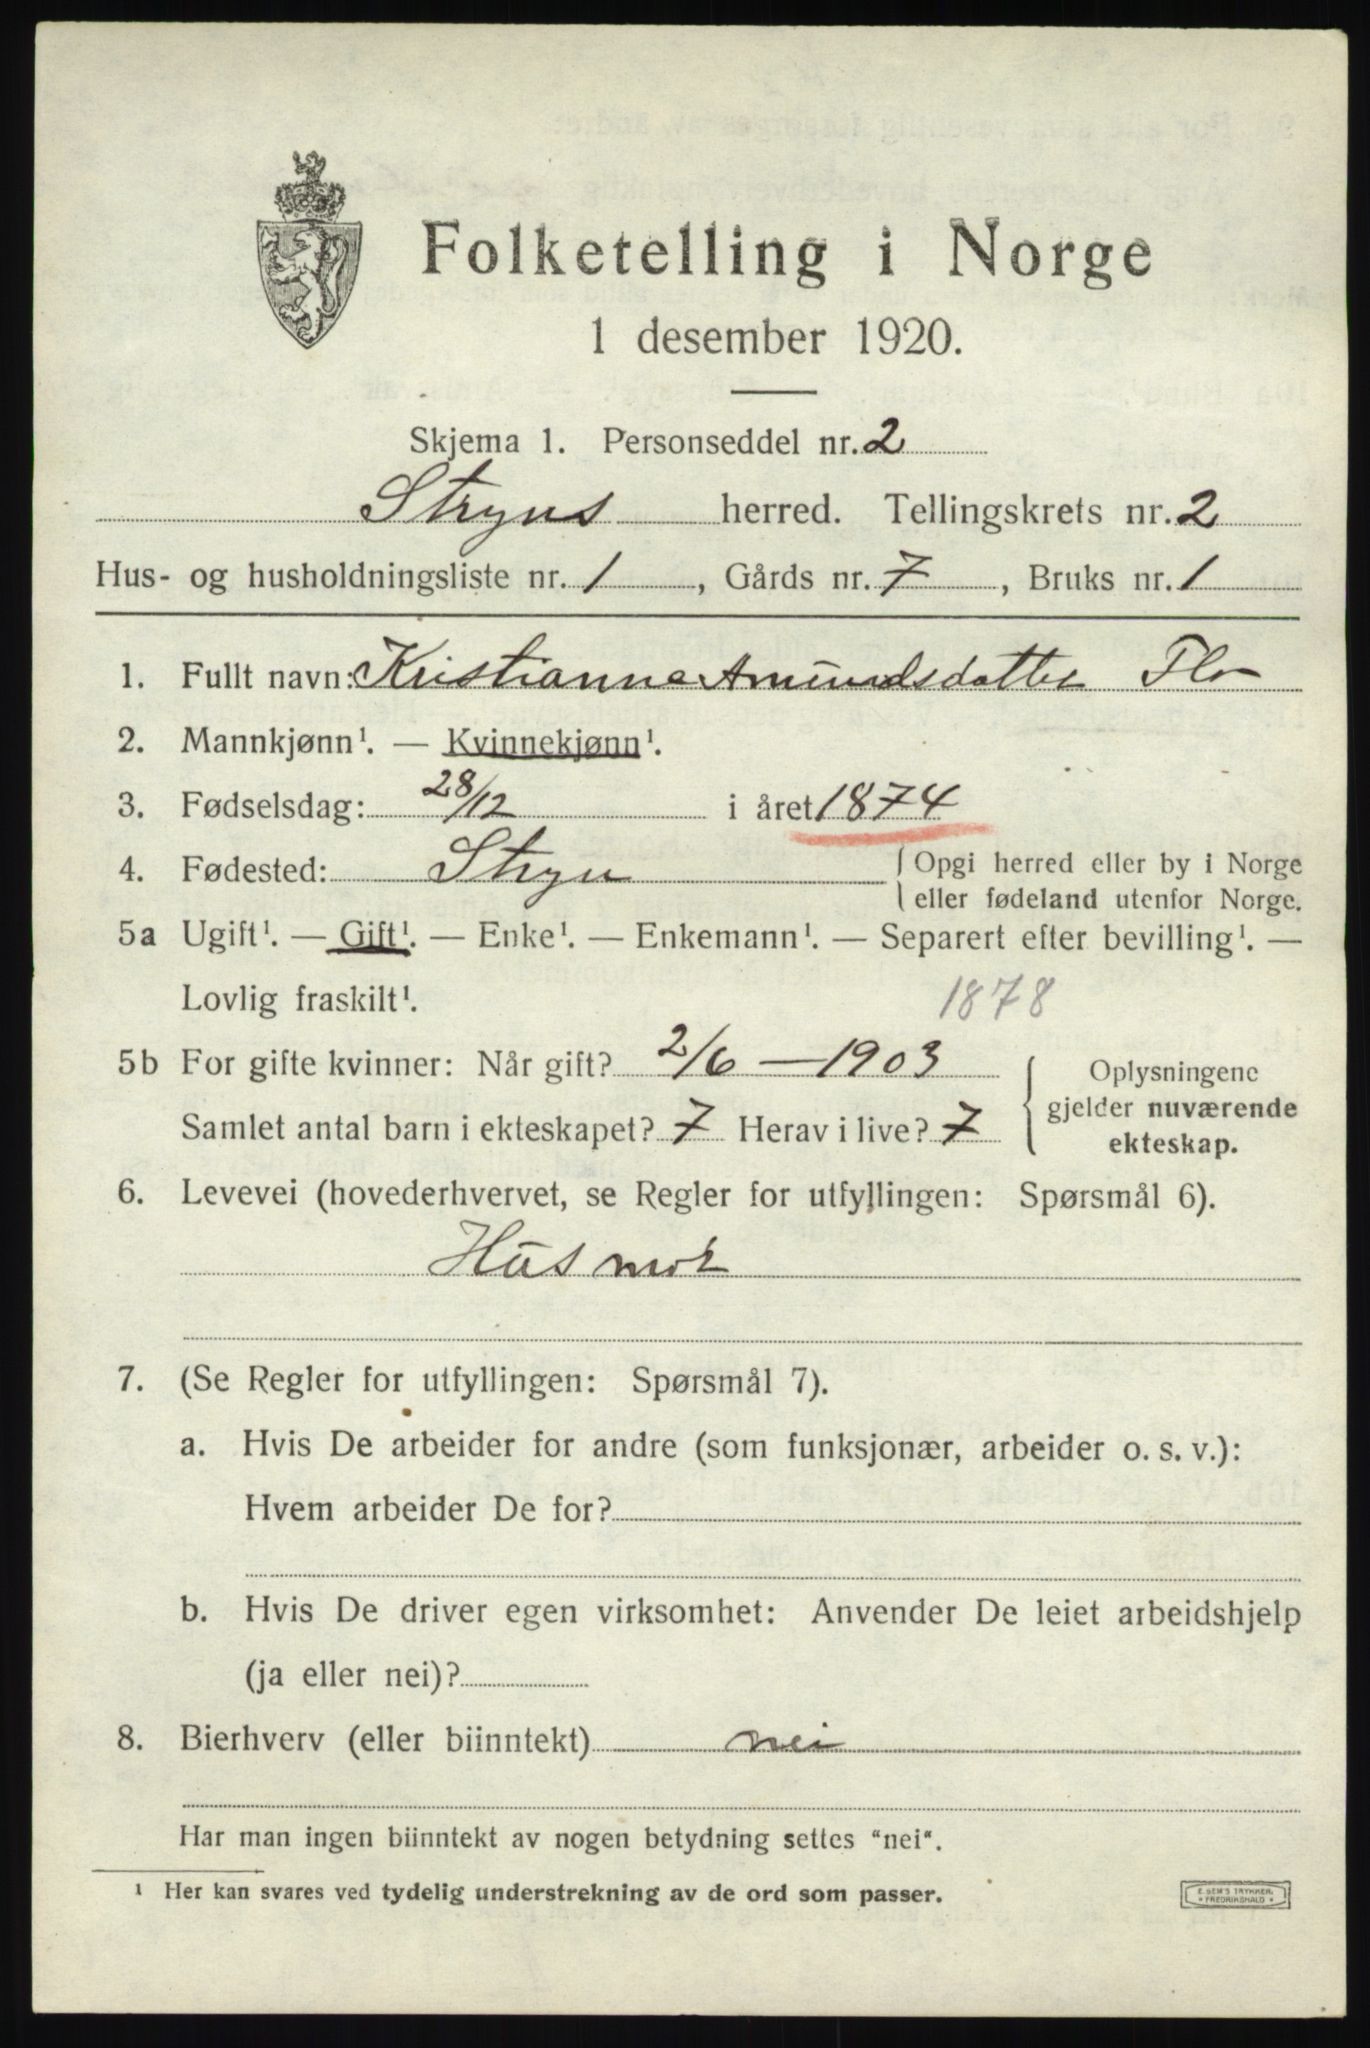 Folketelling i Norge
1 desember 1920.
Skjema 1. Personseddel nr. 2
Stryns herred. Tellingskrets nr. 2
Hus- og husholdningsliste nr. 1, Gårds nr. 7, Bruks nr. 1
1. Fullt navn: Kristianne Amundsdatter Flo
2. Mannkjønn¹. — Kvinnekjønn¹.
3. Fødselsdag: 28/12 i året 1874
4. Fødested: Stryn { Opgi herred eller by i Norge
{ eller fødeland utenfor Norge.
5a Ugift¹. — Gift¹. — Enke¹. — Enkemann¹. — Separert efter bevilling¹. —
Lovlig fraskilt¹. 1878
5b For gifte kvinner: Når gift? 2/6 — 1903
Samlet antal barn i ekteskapet? 7 Herav i live? 7
Oplysningene
gjelder nuværende
ekteskap.
6. Levevei (hovederhvervet, se Regler for utfyllingen: Spørsmål 6).
Husmor
7. (Se Regler for utfyllingen: Spørsmål 7).
a. Hvis De arbeider for andre (som funksjonær, arbeider o. s. v.):
Hvem arbeider De for?
b. Hvis De driver egen virksomhet: Anvender De leiet arbeidshjelp
(ja eller nei)?
8. Bierhverv (eller biinntekt) nei
Har man ingen biinntekt av nogen betydning settes "nei".
¹ Her kan svares ved tydelig understrekning av de ord som passer.
E. SEM'S TRYKKERI
* FREDRIKSHALD *